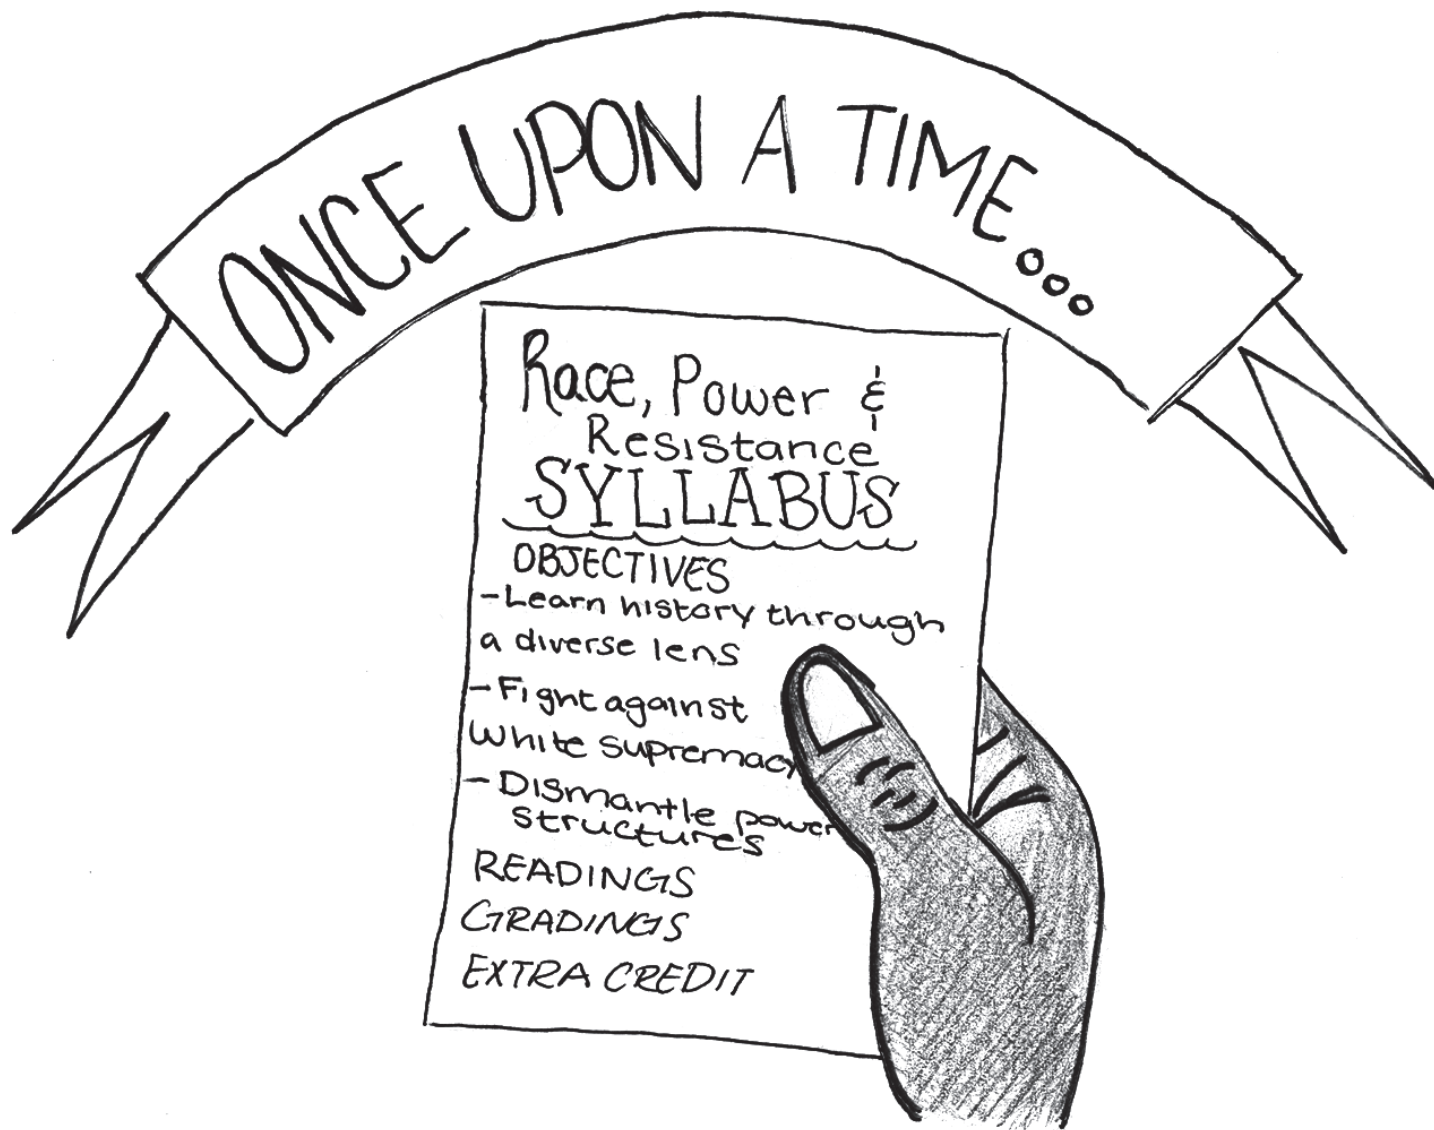 ONCE UPON A TIME...
Race, Power &
Resistance
SYLLABUS
OBJECTIVES
-Learn history through
a diverse lens
-Fight against
White supremacy
-Dismantle power
structures
READINGS
GRADINGS
EXTRA CREDIT